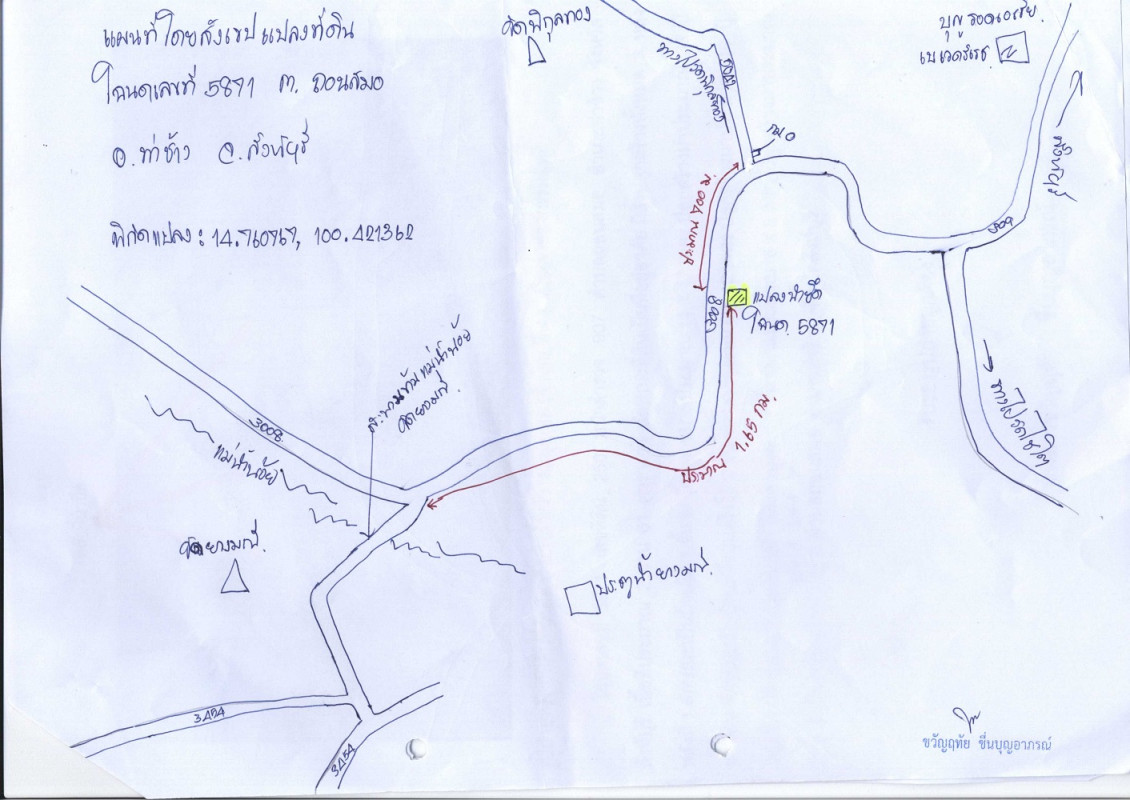 แผนที่โดยสังเขปแปลงที่ดิน
โฉนดเลขที่ 5871 ต. ถอนสมอ
อ.ท่าช้าง จ.สิงห์บุรี
พิกัดแปลง: 14.760767, 100.421362
วัดพิกุลทอง
ทางไปวัดพิกุลทอง
กม 0
บุญรอดเอเซีย
เบเวอร์เรจ
สิงห์บุรี
309
ประมาณ 700 ม.
3008
แปลงนำยึด
โฉนด. 5871
ทางไปวัดไชโย
สะพานข้ามแม่น้ำน้อย
วัดยางมณี
3008
แม่น้ำน้อย
ประมาณ 1.65 กม.
วัดยางมณี.
ประตูน้ำยางมณี.
3454
3454
ขวัญฤทัย ชื่นบุญอาภรณ์